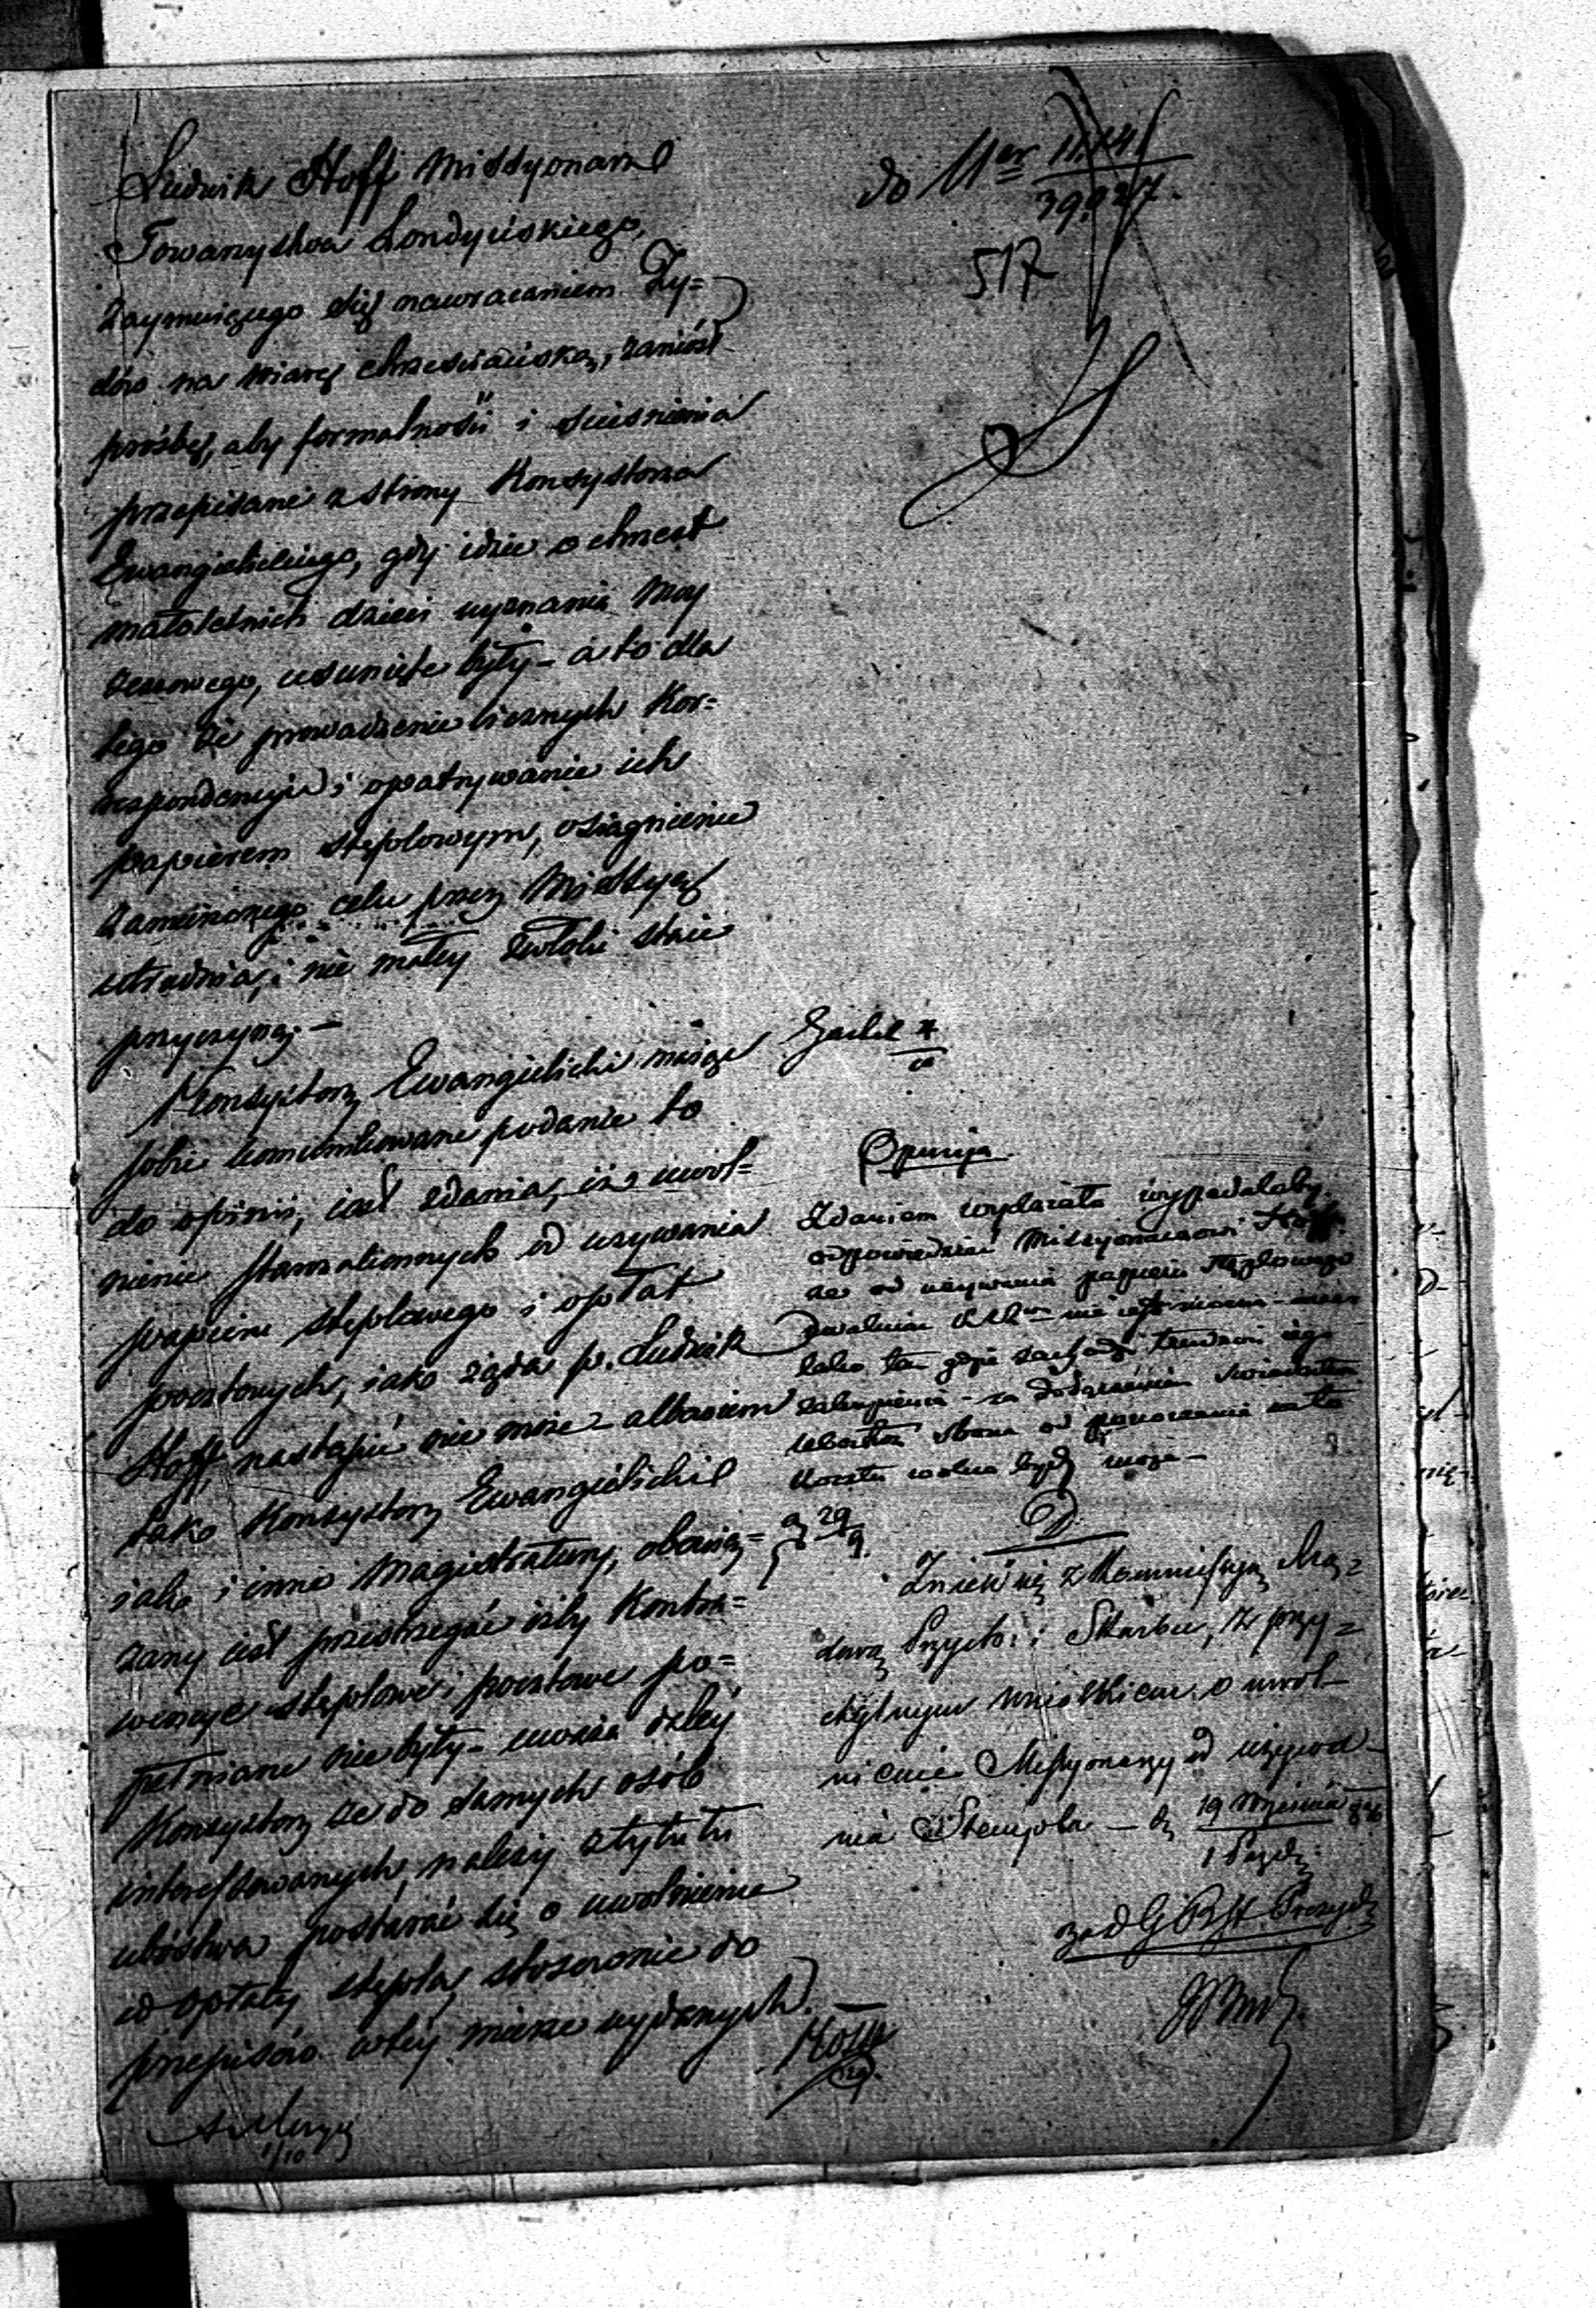 Ludwik Hoff Missyonarz
Towarzystwa Londyńskiego,
Zaymuiącego się nawracaniem Ży=
dów na wiarę chrześciańską, zaniósł
prośbę, aby formalności i ścieśnienia
przepisane z strony Konsystorza
Ewangielickiego, gdy idzie o chrzest
małoletnich dzieci wyznania Moy
żeszowego, usunięte były – a to dla
tego że prowadzenie licznych Kor=
respondencyi i opatrywanie ich
papierem stęplowym, osiągnienie
zamierzonego celu przez Missyę
utrudnia, i nie małey zwłoki staie
przyczyną. –
Konsystorz Ewangielicki maiąc
sobie kommunikowane podanie to
do opinii, iest zdania, iż uwol=
nienie stanu od używania
papieru stęplowego i opłat
pocztowych, iako żąda p. Ludwik
Hoff, nastąpić nie może – albowiem
tak Konsystorz Ewangielicki
iako i inne Magistratury, obowią=
zany iest przestrzegać iżby Kontra=
wencye stęplowe i pocztowe po=
pełniane nie były – uważa daley
Konsystorz że do samych osób
interessowanych, należy z tytułu
ubóstwa postarać się o uwolnienie
od opłaty stępla, stosownie do
przepisów w tey mierze wydanych. –
1/10
do Nr 11,141
39,927.
517
Opinija
Zdaniem wydziału wypadałoby
odpowiedzieć Missyonarzowi Hoff
że od używania papieru stęplowego
uwalniać
tam gdzie zachodzi
– za dołączeniem świadectwa
ubóstwa strona od ponoszenia
kosztu wolna być może –
29/9.
Znieść się z Kommissyą Rzą=
dową Przych: i Skarbu, z przy=
chylnym wnioskiem o uwol=
nienie Missyonarzy od używa=
nia Stempla – d. 19 Września
1 Paźdz: